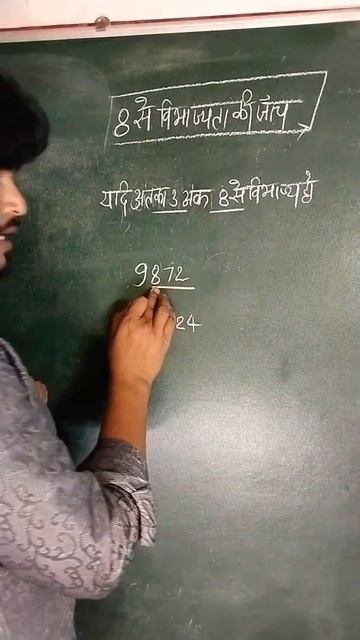 8 से विभाज्यता की जांच
यदि अंत का 3 अंक 8 से विभाज्य हो
9872
24